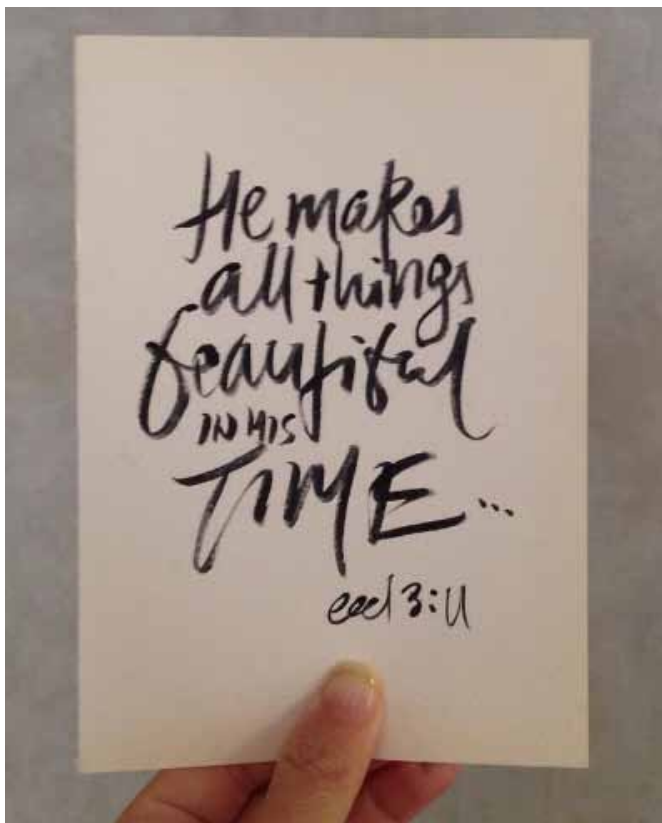 He makes
all things
beautiful
IN HIS
TIME...
eccl 3:11